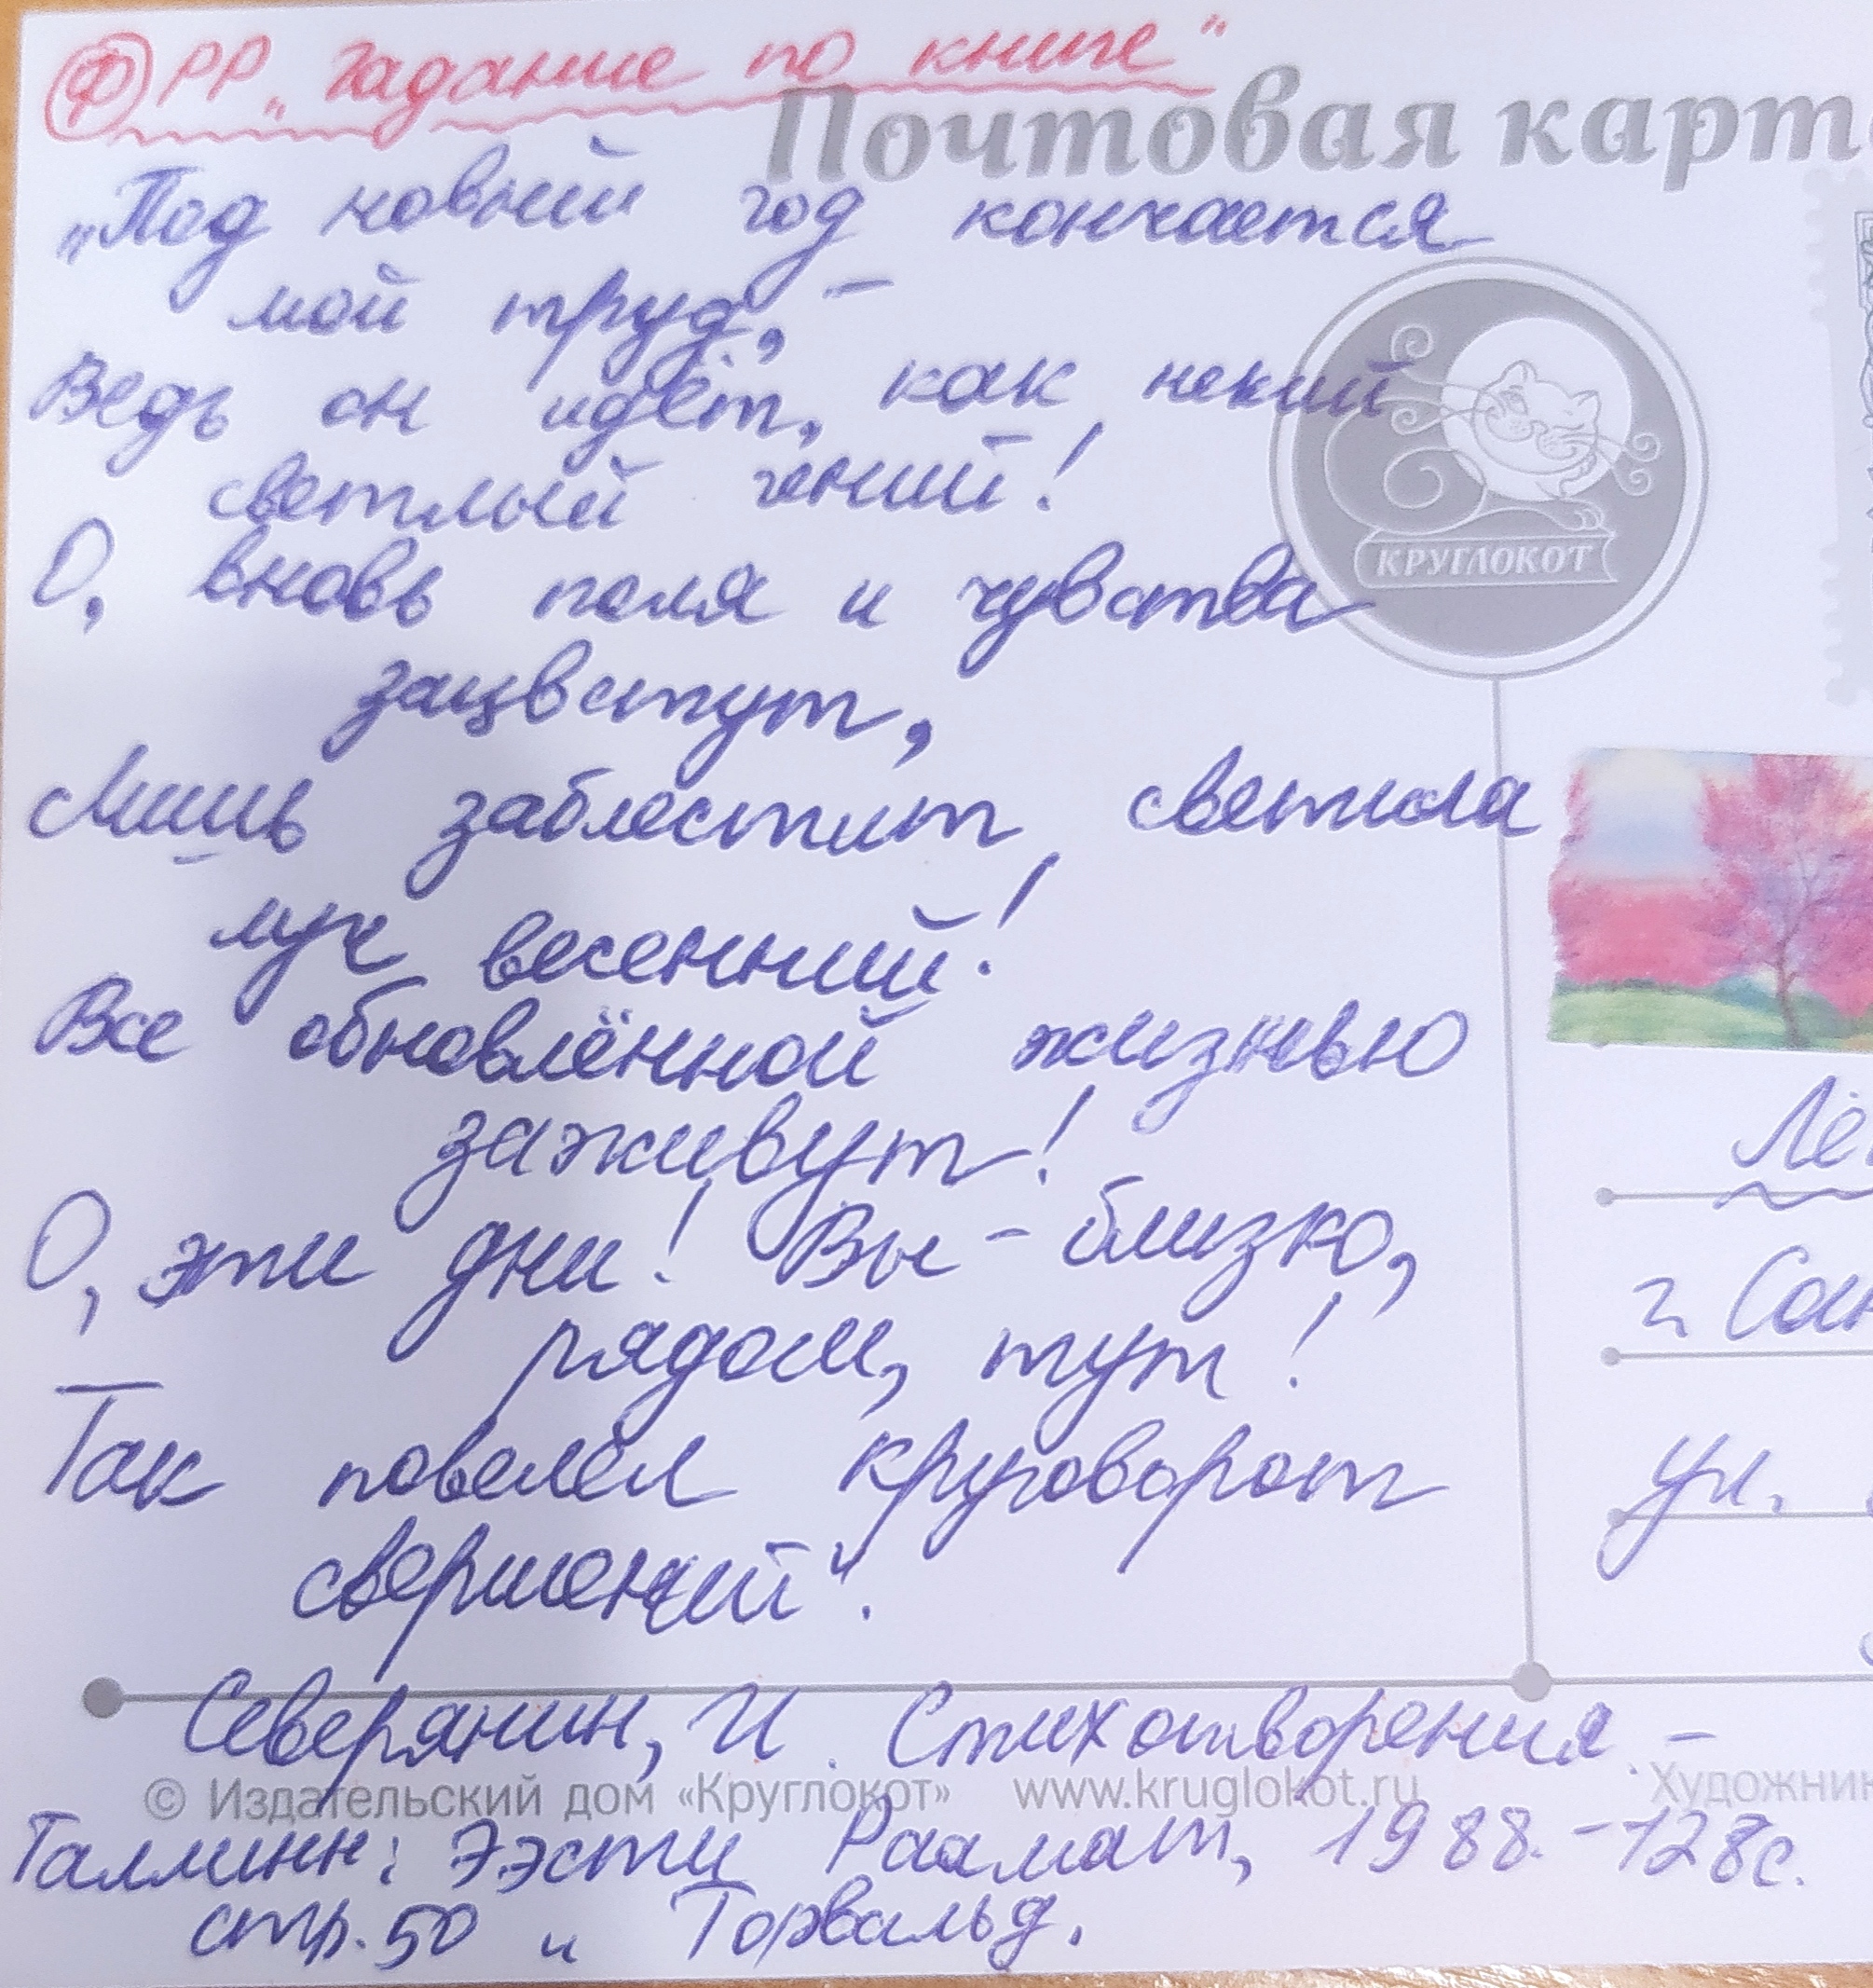 Ф РР „Гадание по книге"
Почтовая карт
„Под новый год кончается
мой труд, –
Ведь он идёт, как некий
светлый гений!
КРУГЛОКОТ
О, вновь поля и чувства
зацветут,
Лишь заблестит светила
луч весенний!
Все обновлённой жизнью
заживут!
О, эти дни! Вы – близко,
рядом, тут!
Так повелел круговорот
свершений".
Лё
г. Сан
ул.
Северянин, И. Стихотворения. –
© Издательский дом «Круглокот» www.kruglokot.ru Художник
Таллинн: Ээсти Раамат, 1988. – 128с.
стр. 50 „ Торвальд.